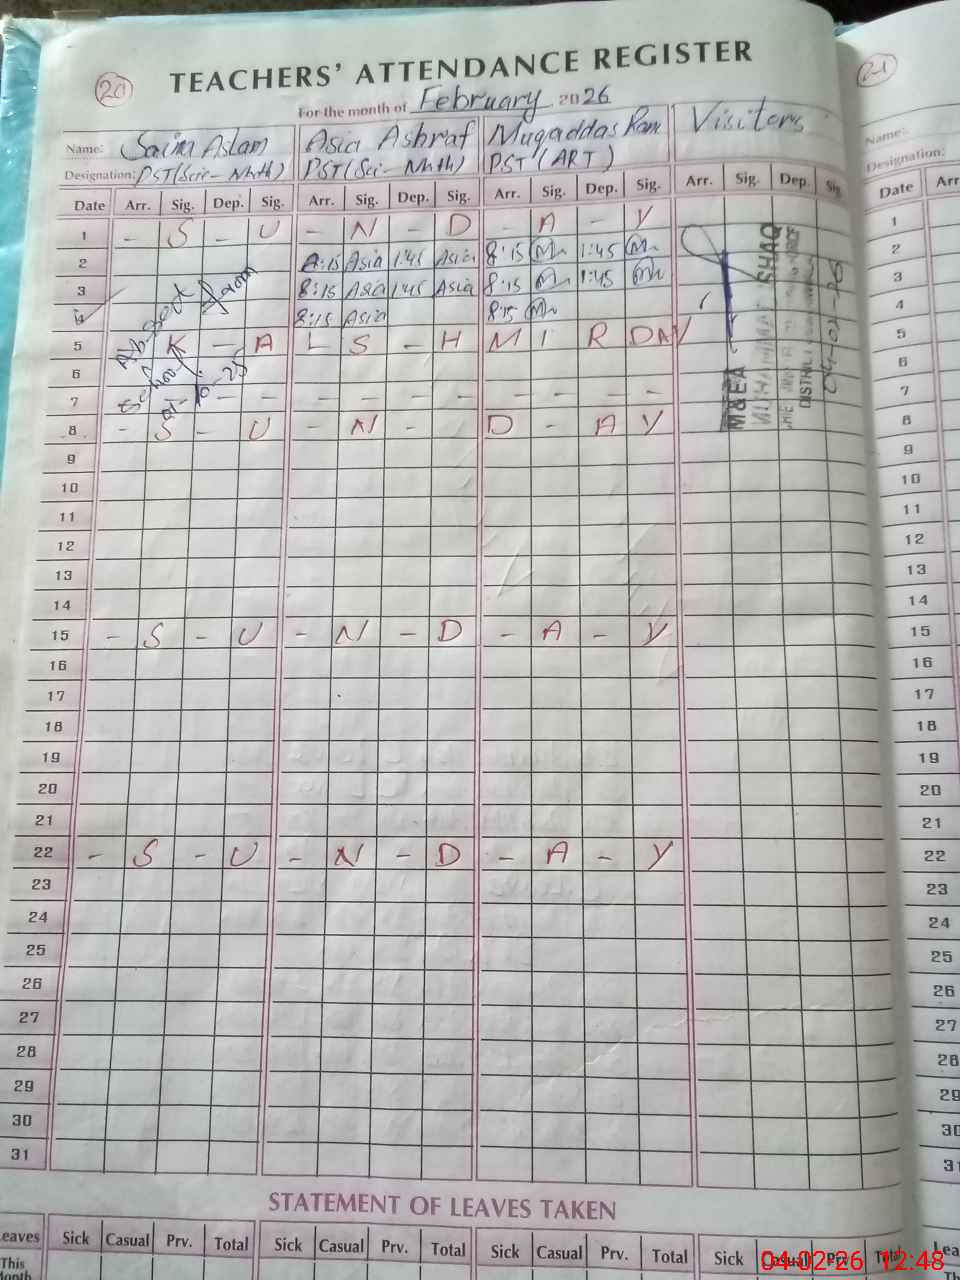 20
TEACHERS' ATTENDANCE REGISTER
For the month of February 2026
Name: Saima Aslam Asia Ashraf Muqaddas Visitors
Designation: PST(Scie-Math) PST(Sci-Math) PST(ART)
Date Arr. Sig. Dep. Sig. Arr. Sig. Dep. Sig. Arr. Sig. Dep. Sig. Arr. Sig. Dep. Sig.
1 - S - U - N - D - A - Y
2 8:15 Asia 1:45 Asia 8:15 1:45
3 8:15 Asia 1:45 Asia 8:15 1:45
4 8:15 Asia 8:15
5 K - A L S - H M I R DAY
6
7 - - - - - - - - - -
8 - S - U - N - D - A Y
9
10
11
12
13
14
15 - S - U - N - D - A - Y
16
17
18
19
20
21
22 - S - U - N - D - A - Y
23
24
25
26
27
28
29
30
31
Absent from
school
M&EA
STATEMENT OF LEAVES TAKEN
Leaves Sick Casual Prv. Total Sick Casual Prv. Total Sick Casual Prv. Total Sick Casual Prv. Total
This
Month
21
Name:
Designation:
Date Arr
1
2
3
4
5
6
7
8
9
10
11
12
13
14
15
16
17
18
19
20
21
22
23
24
25
26
27
28
29
30
31
Lea
Th
04-02-26 12:48